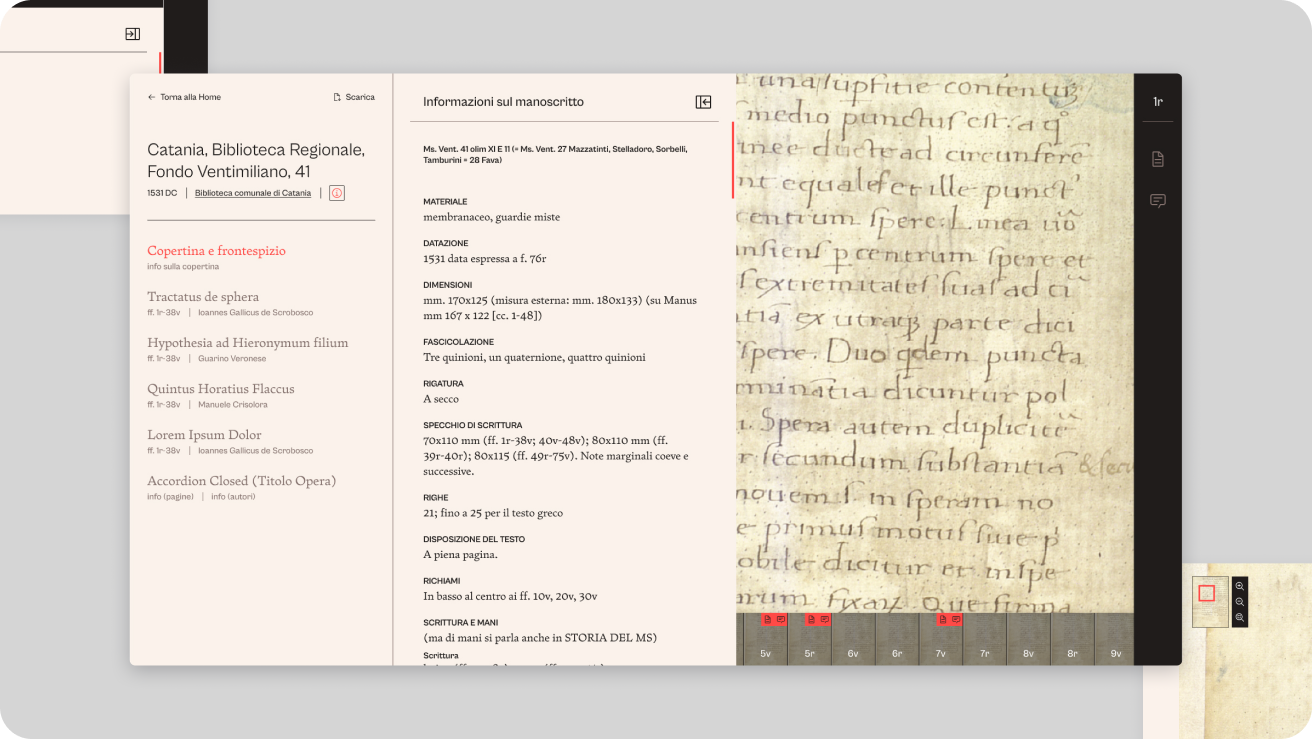 Torna alla Home
Scarica
Catania, Biblioteca Regionale,
Fondo Ventimiliano, 41
1531 DC | Biblioteca comunale di Catania |
Copertina e frontespizio
info sulla copertina
Tractatus de sphera
ff. 1r-38v | Ioannes Gallicus de Scrobosco
Hypothesia ad Hieronymum filium
ff. 1r-38v | Guarino Veronese
Quintus Horatius Flaccus
ff. 1r-38v | Manuele Crisolora
Lorem Ipsum Dolor
ff. 1r-38v | Ioannes Gallicus de Scrobosco
Accordion Closed (Titolo Opera)
info (pagine) | info (autori)
Informazioni sul manoscritto
Ms. Vent. 41 olim XI E 11 (= Ms. Vent. 27 Mazzatinti, Stelladoro, Sorbelli,
Tamburini = 28 Fava)
MATERIALE
membranaceo, guardie miste
DATAZIONE
1531 data espressa a f. 76r
DIMENSIONI
mm. 170x125 (misura esterna: mm. 180x133) (su Manus
mm 167 x 122 [cc. 1-48])
FASCICOLAZIONE
Tre quinioni, un quaternione, quattro quinioni
RIGATURA
A secco
SPECCHIO DI SCRITTURA
70x110 mm (ff. 1r-38v; 40v-48v); 80x110 mm (ff.
39r-40r); 80x115 (ff. 49r-75v). Note marginali coeve e
successive.
RIGHE
21; fino a 25 per il testo greco
DISPOSIZIONE DEL TESTO
A piena pagina.
RICHIAMI
In basso al centro ai ff. 10v, 20v, 30v
SCRITTURA E MANI
(ma di mani si parla anche in STORIA DEL MS)
Scrittura
contentus
medio punctus est: a
ducte ad circunferē
equales et ille punct'
centrum spere. Linea
centrum spere et
extremitates suas ad
ex utraqꝫ parte dici
spere. Duo puncta
dicuntur pol
Spera autem duplicit
secundum substantia
in speram no
primus motus siue
dicitur et in spe
1r
5v 5r 6v 6r 7v 7r 8v 8r 9v